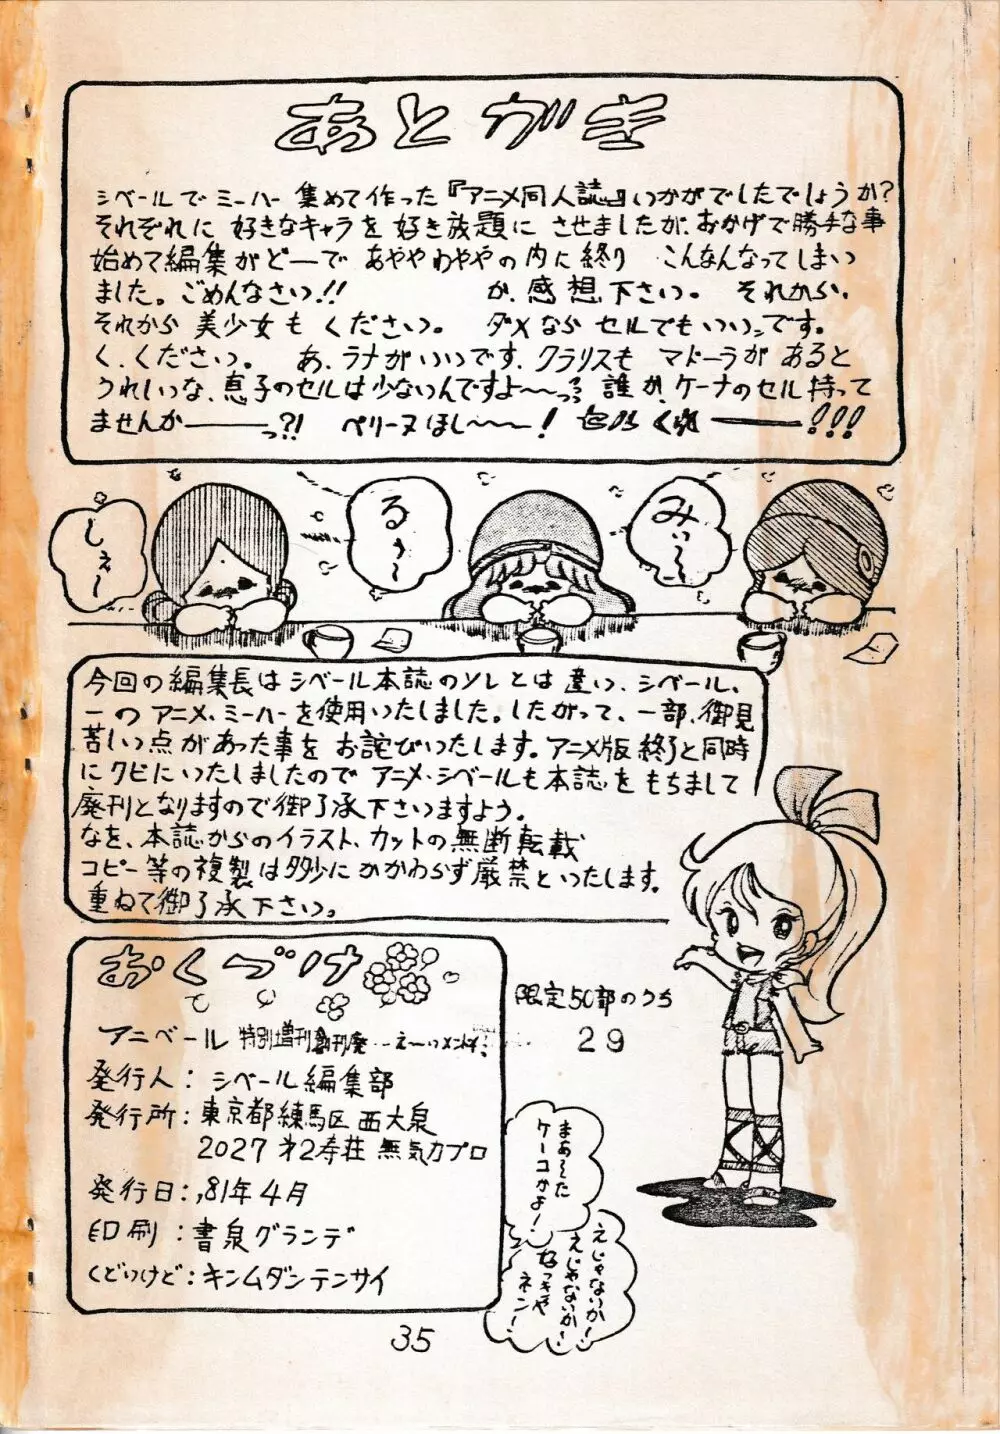 あとがき
シベールでミーハー集めて作った『アニメ同人誌』いかがでしたでしょうか?
それぞれに好きなキャラを好き放題にさせましたが、おかげで勝手な事
始めて編集がどーであややわややの内に終り こんなんなってしまい
ました。ごめんなさい!! が、感想下さい。 それから、
それから美少女もください。 ダメならセルでもいいンです。
く、ください。 あ、ラナがいいです、クラリスも マドーラがあると
うれしいな、恵子のセルは少ないんですよ〜〜っ 誰か、ケーナのセル持って
ませんか———っ?! ペリーヌほし〜〜〜! セルくれ———!!!
しえ〜
るぅ〜
みぃ〜〜
今回の編集長はシベール本誌のソレとは違い、シベール、
一のアニメ・ミーハーを使用いたしました。したがって、一部、御見
苦しい点があった事をお詫びいたします。アニメ版終了と同時
にクビにいたしましたのでアニメ・シベールも本誌をもちまして
廃刊となりますので御了承下さいますよう。
なを、本誌からのイラスト、カットの無断転載
コピー等の複製は多少にかかわらず厳禁といたします。
重ねて御了承下さい。
おくづけ
アニベール 特別増刊創刊廃
発行人:シベール編集部
発行所:東京都練馬区西大泉
2027 才2寿荘 無気力プロ
発行日:,81年4月
印刷:書泉グランデ
くどいけど:キンムダンテンサイ
限定50部のうち
29
まぁ〜た
ケーコかよ!
えじゃないか!
えじゃないか!
なっきゃ
ネン!
35